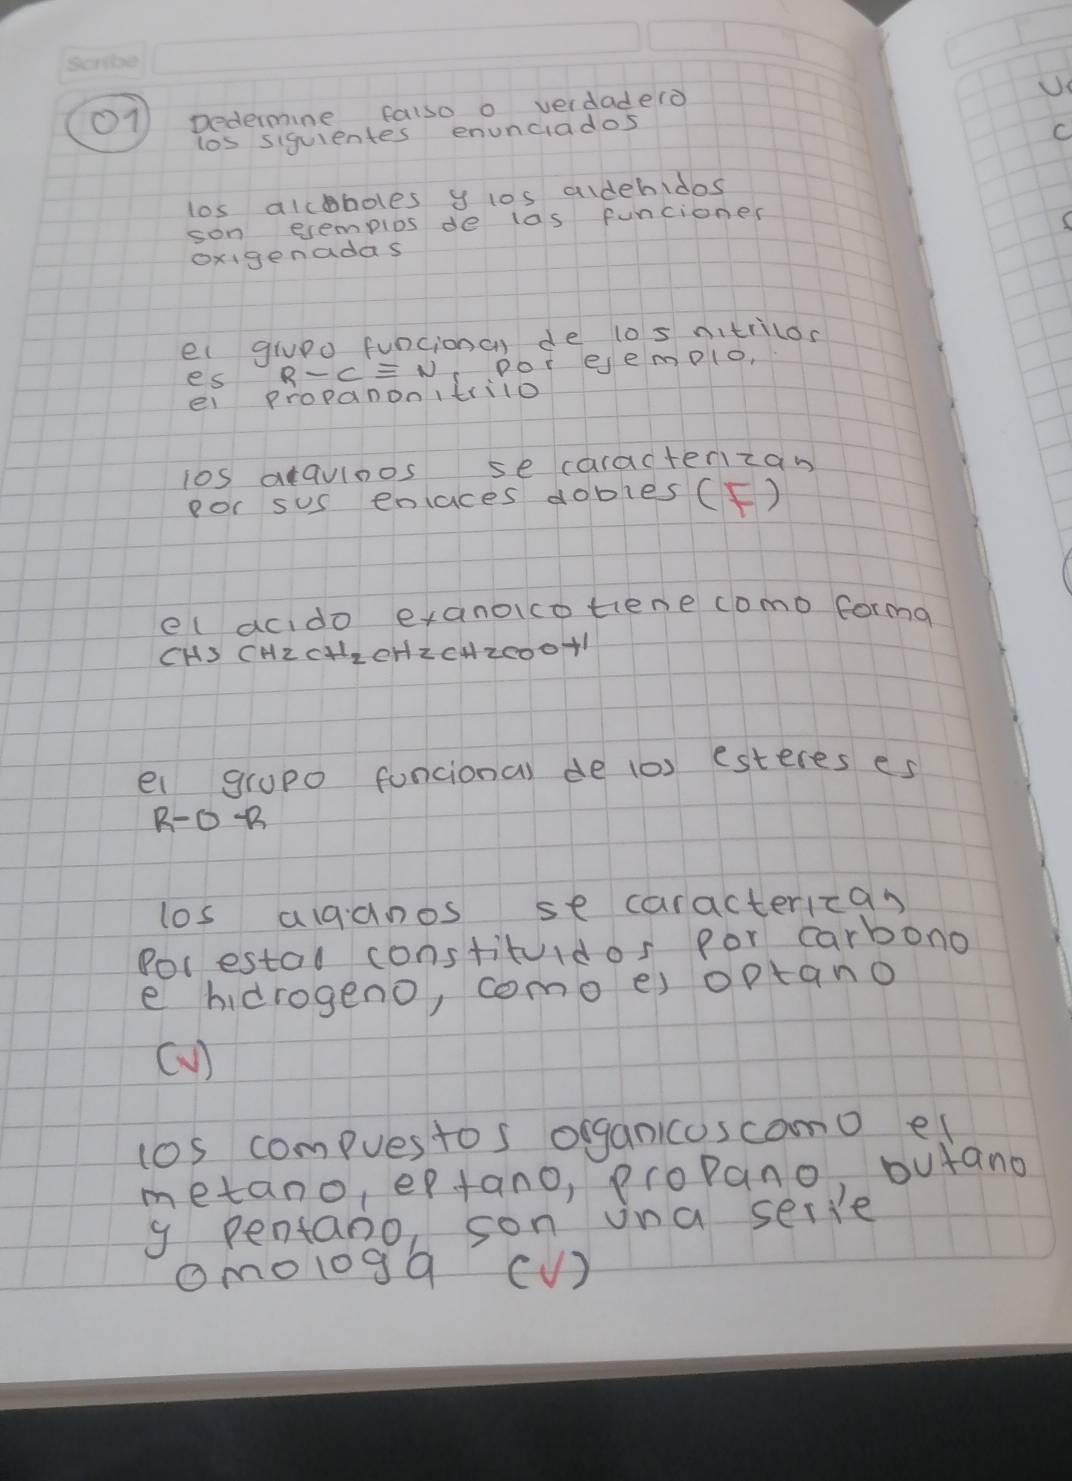 Scribe
01 Dedermine falso o verdadero
los siguientes enunciados
los alcoholes y los aldehidos
son ejemplos de las funciones
oxigenadas
el grupo funcional de los nitrilos
es R-C≡N, por ejemplo,
el propanonitrilo
los alquinos se caracterizan
por sus enlaces dobles (F)
el acido exanoico tiene como forma
CH3 CH2 CH2 CH2 CH2COOH
el grupo funcional de los esteres es
R-O-R
los alganos se caracterizan
por estar constituidos por carbono
e hidrogeno, como el optano
(V)
los compuestos organicos como el
metano, eptano, propano, butano
y pentano, son una serie
omologa (V)